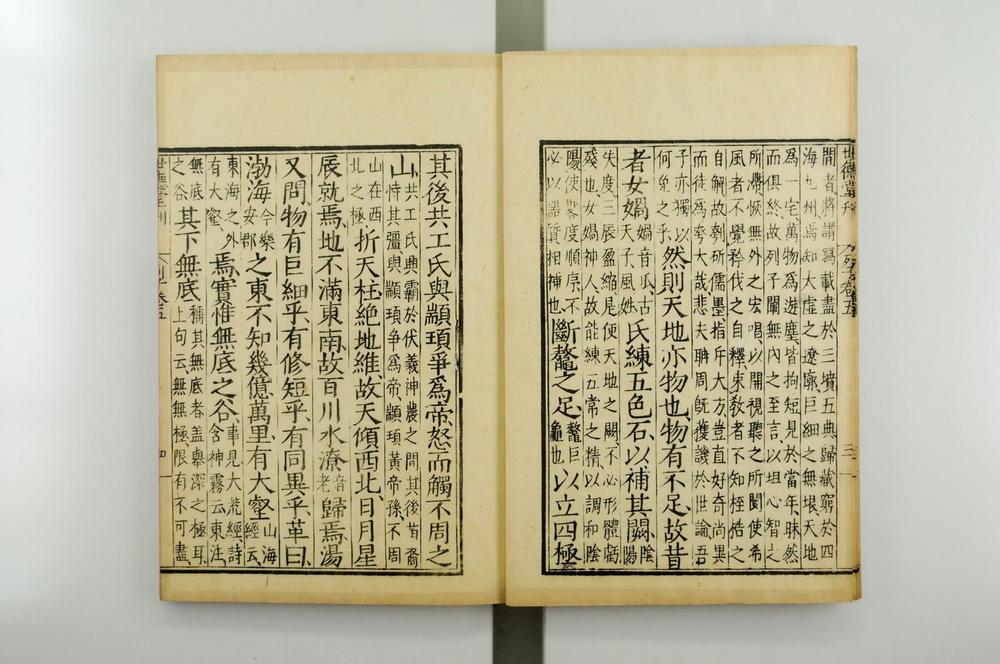 世德堂刊 列子卷五 三
聞者將謂寫載盡於三墳五典歸藏窮於四
海九州焉知太虛之遼廓巨細之無垠天地
為一宅萬物為遊塵皆拘短見於當年昧然
而俱終故列子闡無內之至言以坦心智之
所滯恢無外之宏唱以開視聽之所閡使希
風者不覺矜伐之自釋束敎者不知桎梏之
自解故刳斫儒墨指斥大方豈直好奇尚異
而徒為夸大哉悲夫聃周旣獲譏於世論吾
子亦獨以何免之乎然則天地亦物也物有不足故昔
者女媧音瓜古天子風姓氏練五色石以補其闕陰陽
失度三辰盈縮是便天地之闕不必形體虧
殘也女媧神人故能練五常之精以調和陰
陽使晷度順序不必以器質相補也斷鼇之足鼇巨龜也以立四極
其後共工氏與顓頊爭為帝怒而觸不周之
山共工氏興霸於伏羲神農之間其後苗裔恃其彊與顓頊爭為帝顓頊黃帝孫不周
山在西北之極折天柱絕地維故天傾西北日月星
辰就焉地不滿東南故百川水潦音老歸焉湯
又問物有巨細乎有修短乎有同異乎革曰
渤海今樂安郡之東不知幾億萬里有大壑山海經云
東海之外有大壑焉實惟無底之谷事見大荒經詩含神霧云東注
無底之谷其下無底稱其無底者蓋舉深之極耳上句云無無極限有不可盡
世德堂刊 列子卷五 四